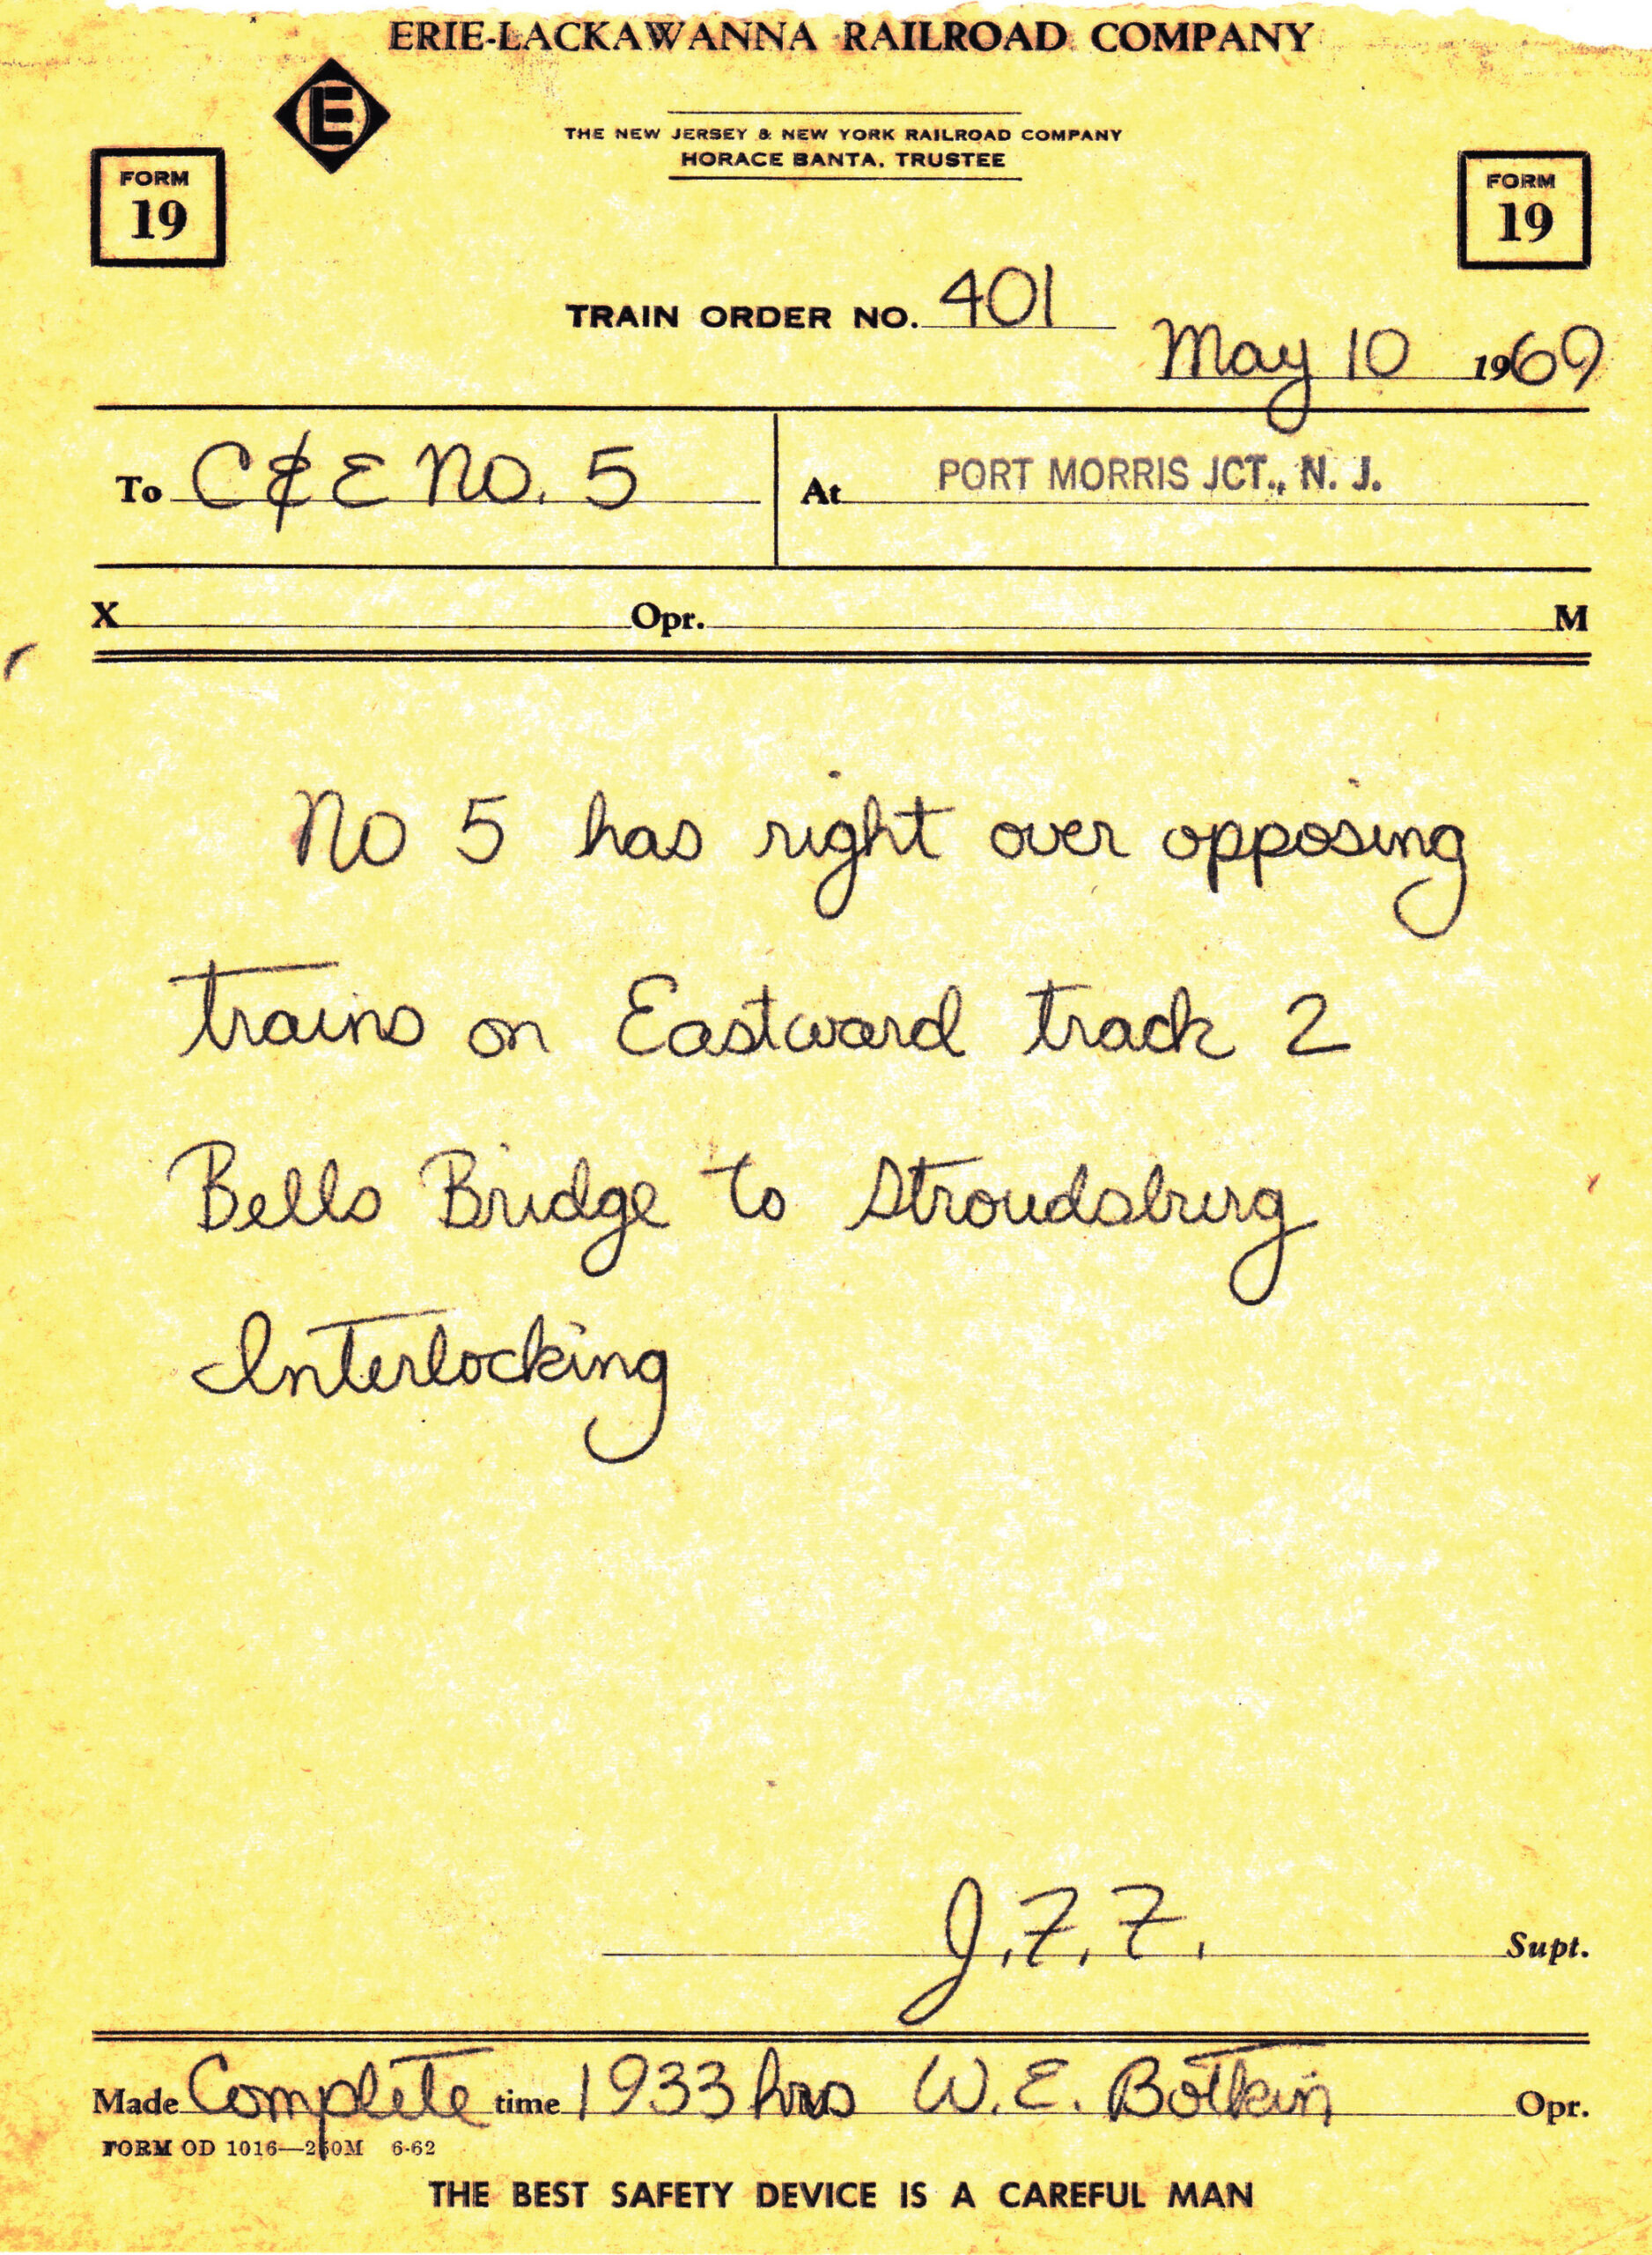 ERIE-LACKAWANNA RAILROAD COMPANY
E
THE NEW JERSEY & NEW YORK RAILROAD COMPANY
HORACE BANTA, TRUSTEE
FORM
19
FORM
19
TRAIN ORDER NO. 401
May 10 1969
To C & E NO. 5
At PORT MORRIS JCT., N. J.
X Opr. M
NO 5 has right over opposing
trains on Eastward track 2
Bells Bridge to Stroudsburg
Interlocking
J.F.F. Supt.
Made Complete time 1933 hrs W. E. Botkin Opr.
FORM OD 1016—250M 6-62
THE BEST SAFETY DEVICE IS A CAREFUL MAN